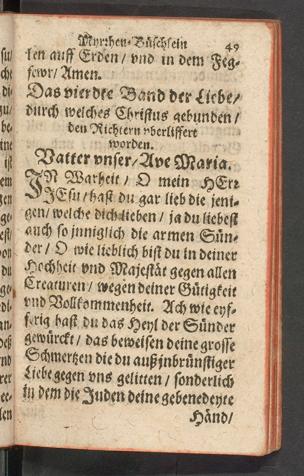 Myrrhen-Büschlein 49
len auff Erden / vnd in dem Feg-
fewr / Amen.
Das vierdte Band der Liebe /
durch welches Christus gebunden /
den Richtern vberliffert
worden.
Vatter vnser / Ave Maria.
IN Warheit / O mein HErr
JEsu / hast du gar lieb die jeni-
gen / welche dich lieben / ja du liebest
auch so jnniglich die armen Sün-
der / O wie lieblich bist du in deiner
Hochheit vnd Majestät gegen allen
Creaturen / wegen deiner Gütigkeit
vnd Vollkommenheit. Ach wie eyf-
ferig hast du das Heyl der Sünder
gewürckt / das beweisen deine grosse
Schmertzen die du auß jnbrünstiger
Liebe gegen vns gelitten / sonderlich
in dem die Juden deine gebenedeyte
Händ /